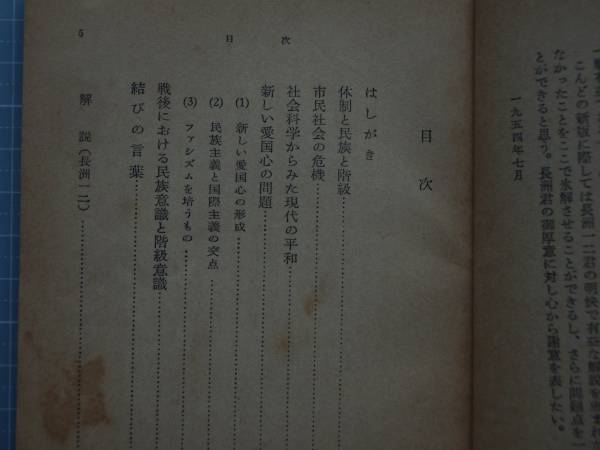 こんどの新版に際しては長洲一二君の明快で有益な解説を
なかったことをここで氷解させることができるし、さらに問題点を一
とができると思う。長洲君の御厚意に対し心から謝意を表したい。
一九五四年七月
目次
はしがき
体制と民族と階級
市民社会の危機
社会科学からみた現代の平和
新しい愛国心の問題
(1) 新しい愛国心の形成
(2) 民族主義と国際主義の交点
(3) ファシズムを培うもの
戦後における民族意識と階級意識
結びの言葉
解説(長洲一二)
目次
5